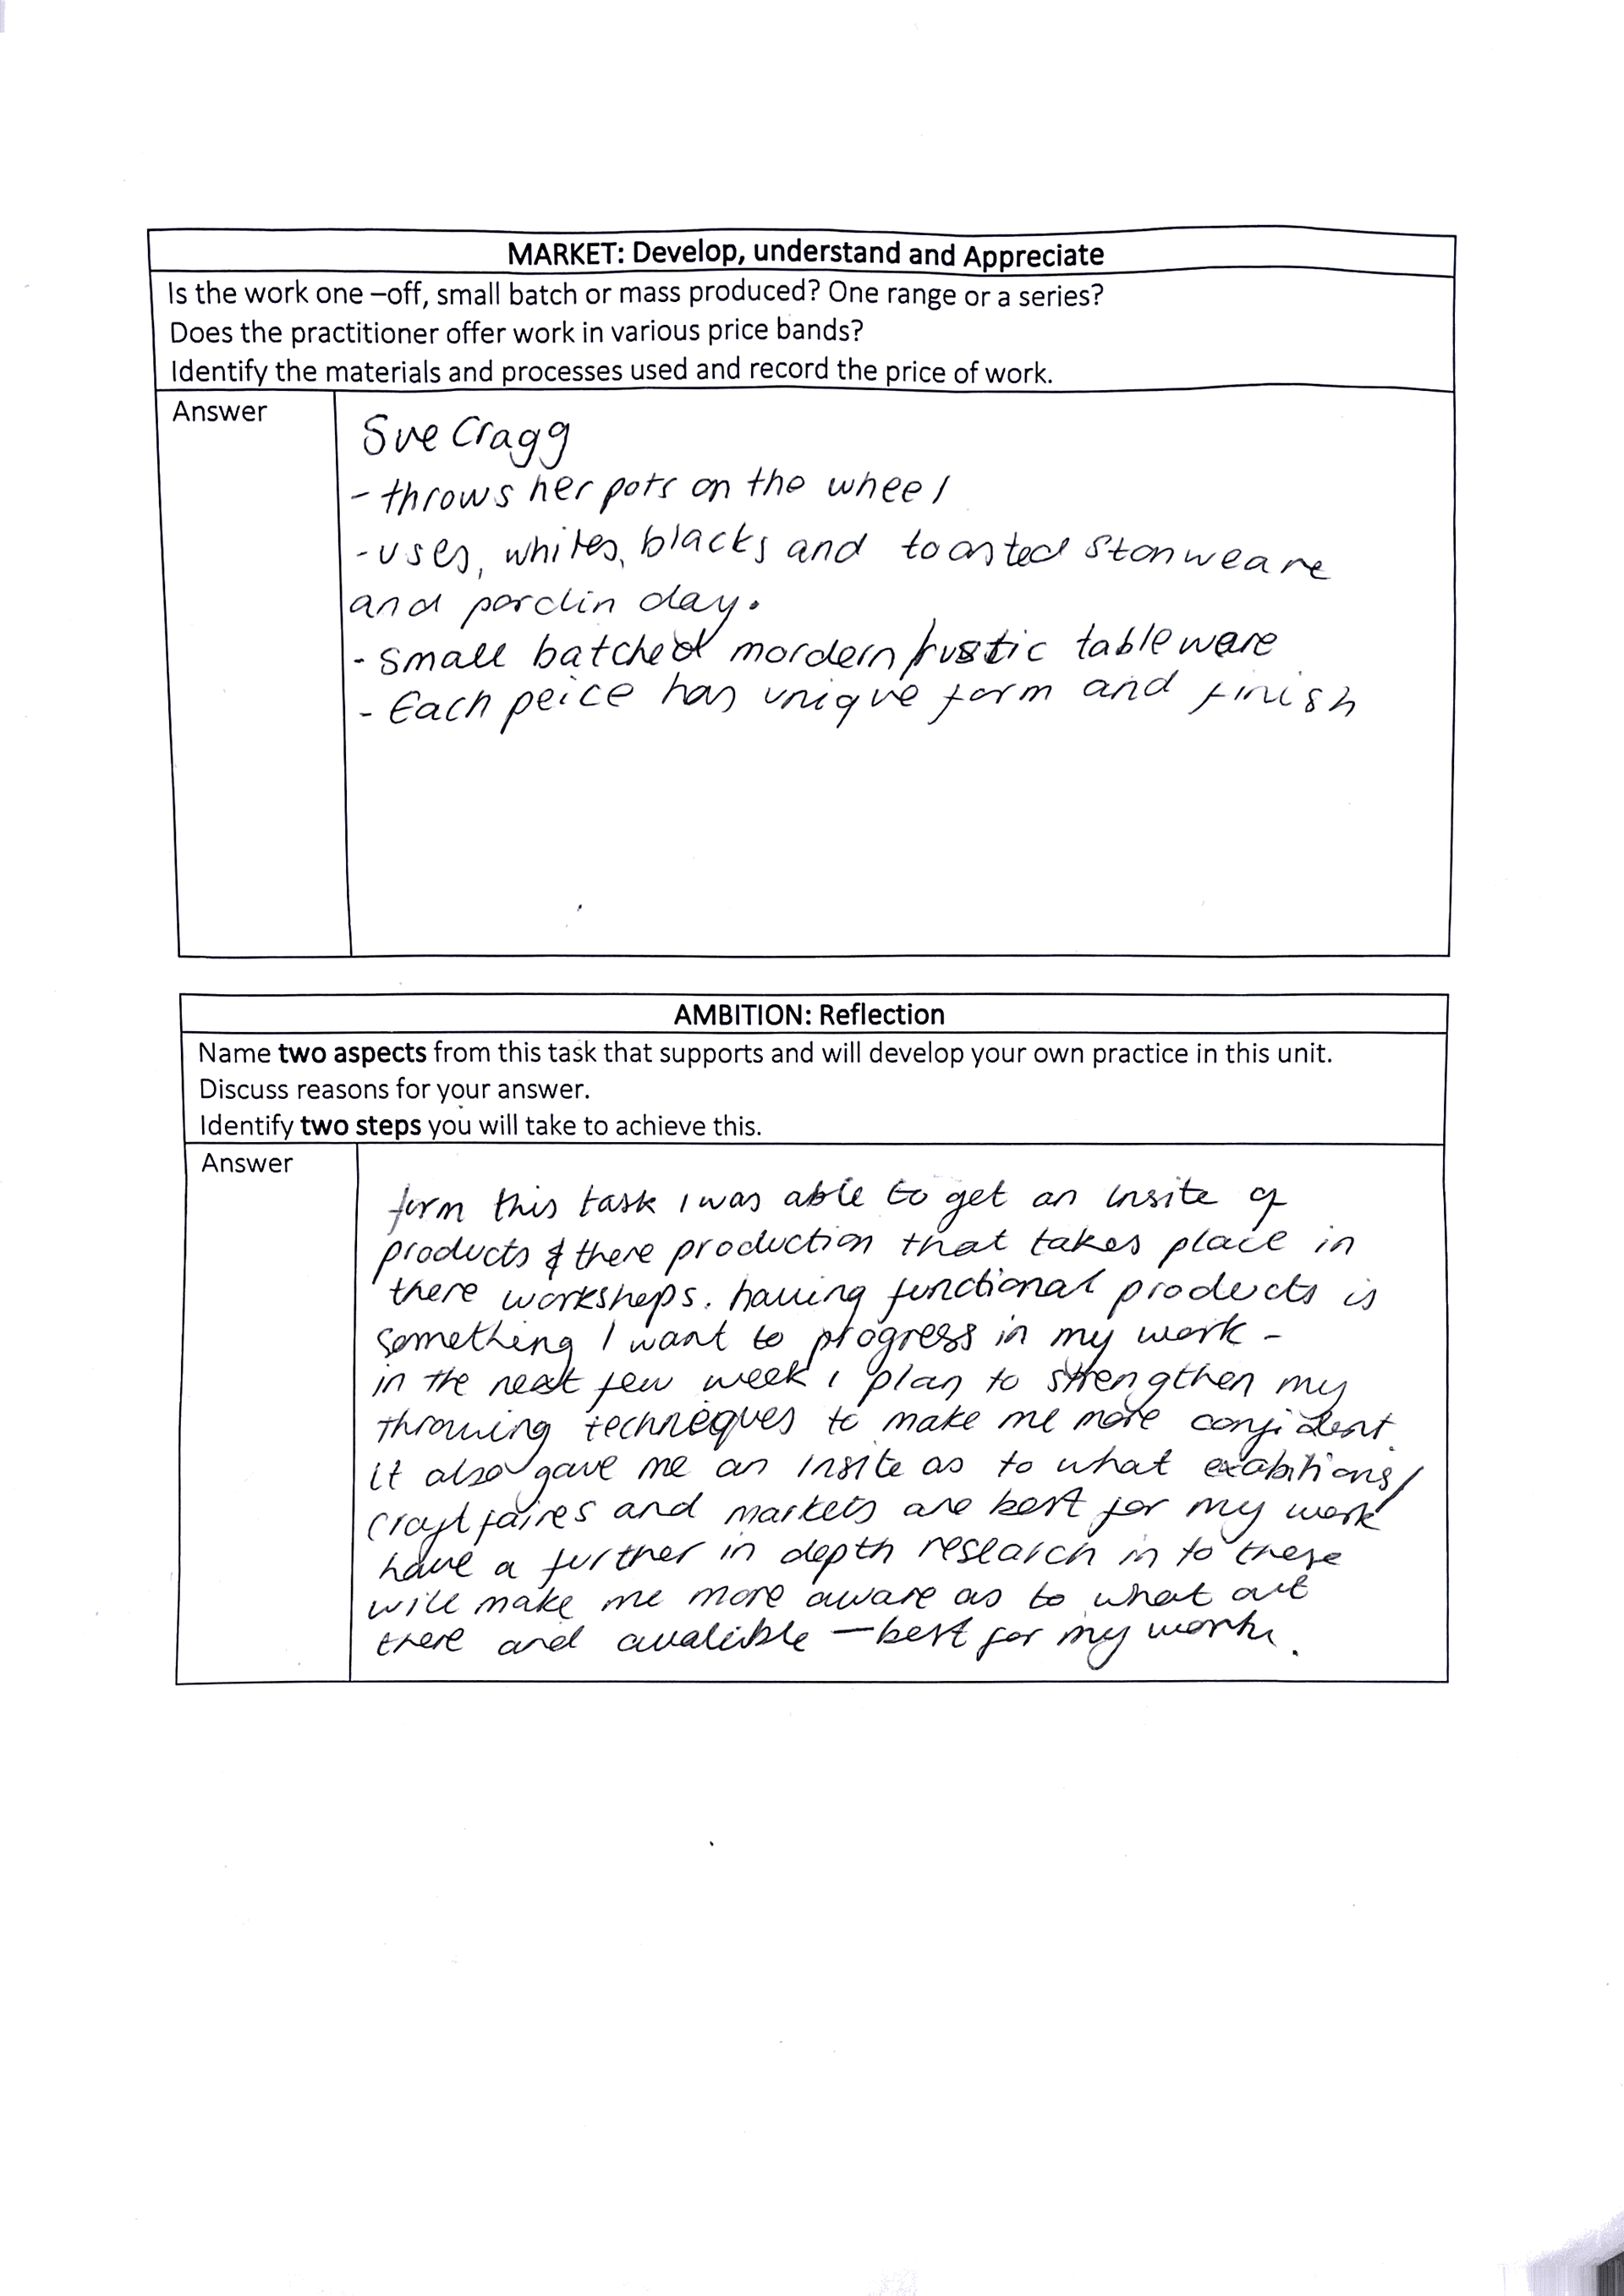 MARKET: Develop, understand and Appreciate
Is the work one –off, small batch or mass produced? One range or a series?
Does the practitioner offer work in various price bands?
Identify the materials and processes used and record the price of work.
Answer
Sue Cragg
- throws her pots on the wheel
- uses, whites, blacks and toasted stonweare
and porclin clay.
- small batched mordern/rustic tableware
- Each peice has unique form and finish
AMBITION: Reflection
Name two aspects from this task that supports and will develop your own practice in this unit.
Discuss reasons for your answer.
Identify two steps you will take to achieve this.
Answer
form this task I was able to get an insite of
products & there production that takes place in
there workshops. having functional products is
something I want to progress in my work -
in the next few week i plan to strengthen my
throwing techneques to make me more confident.
it also gave me an insite as to what exabitions/
craft faires and markets are best for my work
have a further in depth research in to these
will make me more aware as to what out
there and avalible — best for my work.